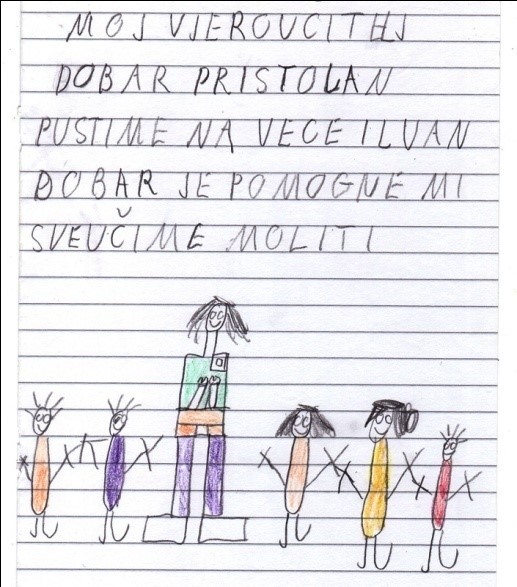 MOJ VJEROUCITHJ
DOBAR PRISTOLAN
PUSTIME NA VECE ILVAN
DOBAR JE POMOGNE MI
SVEUČIME MOLITI